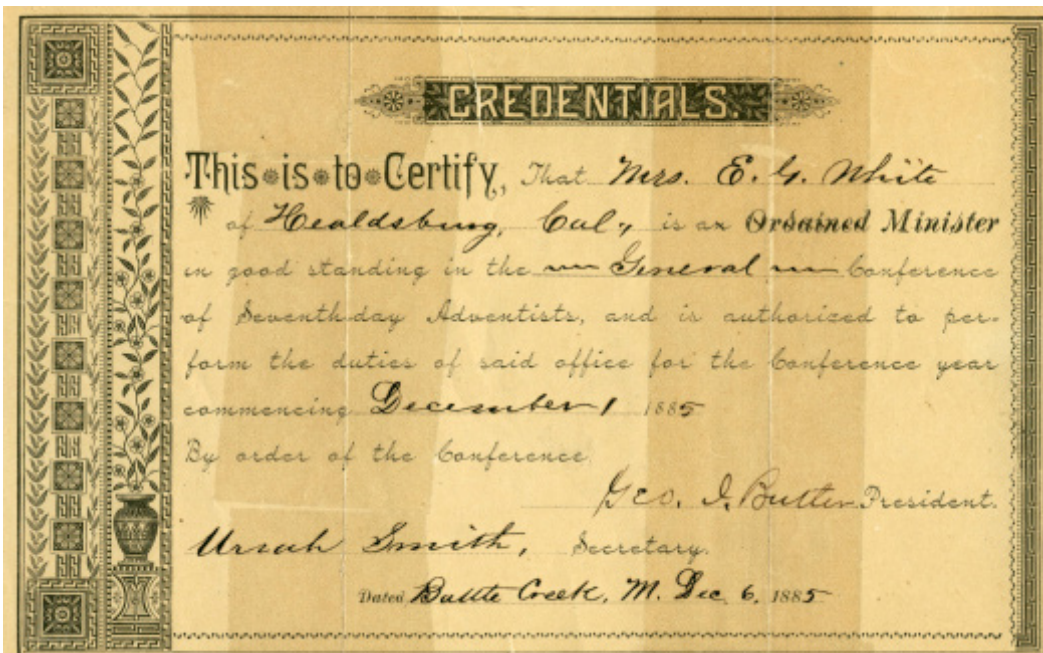 CREDENTIALS.
This is to Certify, That Mrs. E. G. White
of Healdsburg, Cal., is an Ordained Minister
in good standing in the General Conference
of Seventh-day Adventists, and is authorized to per-
form the duties of said office for the Conference year
commencing December 1 1885
By order of the Conference.
Geo. I. Butler President.
Uriah Smith, Secretary.
Dated Battle Creek, M. Dec 6, 1885